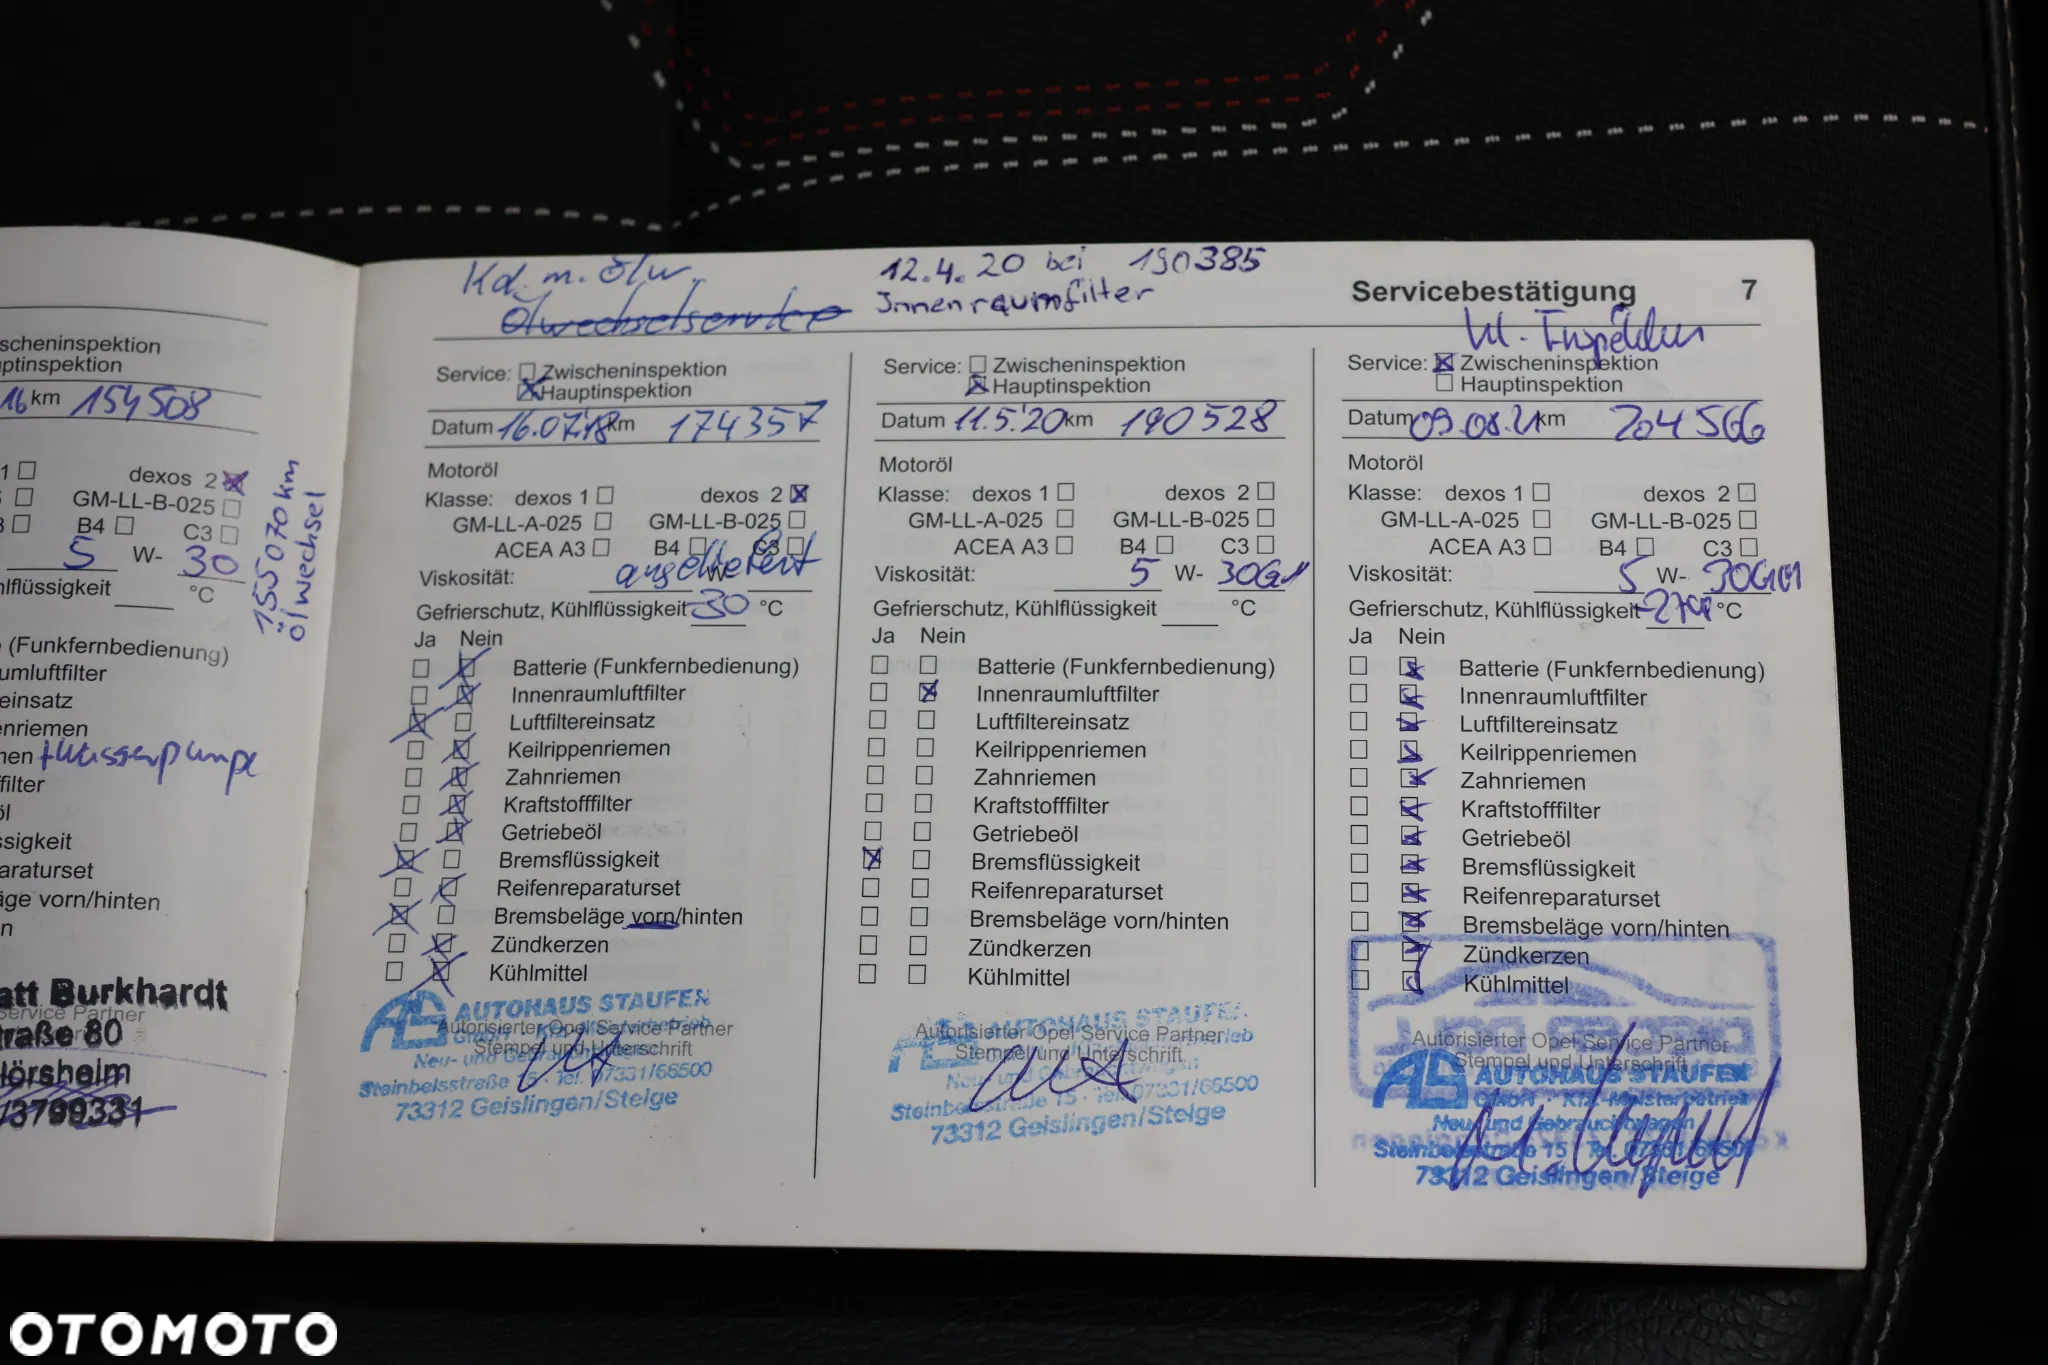 scheninspektion
ptinspektion
16 km 154508
1
dexos 2
GM-LL-B-025
B4 C3
5 W- 30
lflüssigkeit °C
155070 km
ölwechsel
(Funkfernbedienung)
umluftfilter
einsatz
nriemen
men + Wasserpumpe
filter
öl
ssigkeit
araturset
äge vorn/hinten
n
att Burkhardt
Service Partner
traße 80
lörsheim
/3799331
Kd. m. Ölw.
Ölwechselservice
12.4.20 bei 190385
Innenraumfilter
Servicebestätigung 7
kl. Inspektion
Service: Zwischeninspektion
Hauptinspektion
Datum 16.07.18 km 174357
Motoröl
Klasse: dexos 1 dexos 2
GM-LL-A-025 GM-LL-B-025
ACEA A3 B4 C3
Viskosität: angeliefert W-
Gefrierschutz, Kühlflüssigkeit -30 °C
Ja Nein
Batterie (Funkfernbedienung)
Innenraumluftfilter
Luftfiltereinsatz
Keilrippenriemen
Zahnriemen
Kraftstofffilter
Getriebeöl
Bremsflüssigkeit
Reifenreparaturset
Bremsbeläge vorn/hinten
Zündkerzen
Kühlmittel
Autorisierter Opel Service Partner
Stempel und Unterschrift
AUTOHAUS STAUFEN
Steinbeisstraße 15 · Tel. 07331/66500
73312 Geislingen/Steige
Service: Zwischeninspektion
Hauptinspektion
Datum 11.5.20 km 190528
Motoröl
Klasse: dexos 1 dexos 2
GM-LL-A-025 GM-LL-B-025
ACEA A3 B4 C3
Viskosität: 5 W- 30
Gefrierschutz, Kühlflüssigkeit °C
Ja Nein
Batterie (Funkfernbedienung)
Innenraumluftfilter
Luftfiltereinsatz
Keilrippenriemen
Zahnriemen
Kraftstofffilter
Getriebeöl
Bremsflüssigkeit
Reifenreparaturset
Bremsbeläge vorn/hinten
Zündkerzen
Kühlmittel
Autorisierter Opel Service Partner
Stempel und Unterschrift
AUTOHAUS STAUFEN
Steinbeisstraße 15 · Tel. 07331/66500
73312 Geislingen/Steige
Service: Zwischeninspektion
Hauptinspektion
Datum 09.08.21 km 204566
Motoröl
Klasse: dexos 1 dexos 2
GM-LL-A-025 GM-LL-B-025
ACEA A3 B4 C3
Viskosität: 5 W- 30
Gefrierschutz, Kühlflüssigkeit -27 °C
Ja Nein
Batterie (Funkfernbedienung)
Innenraumluftfilter
Luftfiltereinsatz
Keilrippenriemen
Zahnriemen
Kraftstofffilter
Getriebeöl
Bremsflüssigkeit
Reifenreparaturset
Bremsbeläge vorn/hinten
Zündkerzen
Kühlmittel
Autorisierter Opel Service Partner
Stempel und Unterschrift
ALS AUTOHAUS STAUFEN
GmbH · Kfz.-Meisterbetrieb
Neu- und Gebrauchtwagen
Steinbeisstraße 15 Tel. 07331/66500
73312 Geislingen/Steige
OTOMOTO